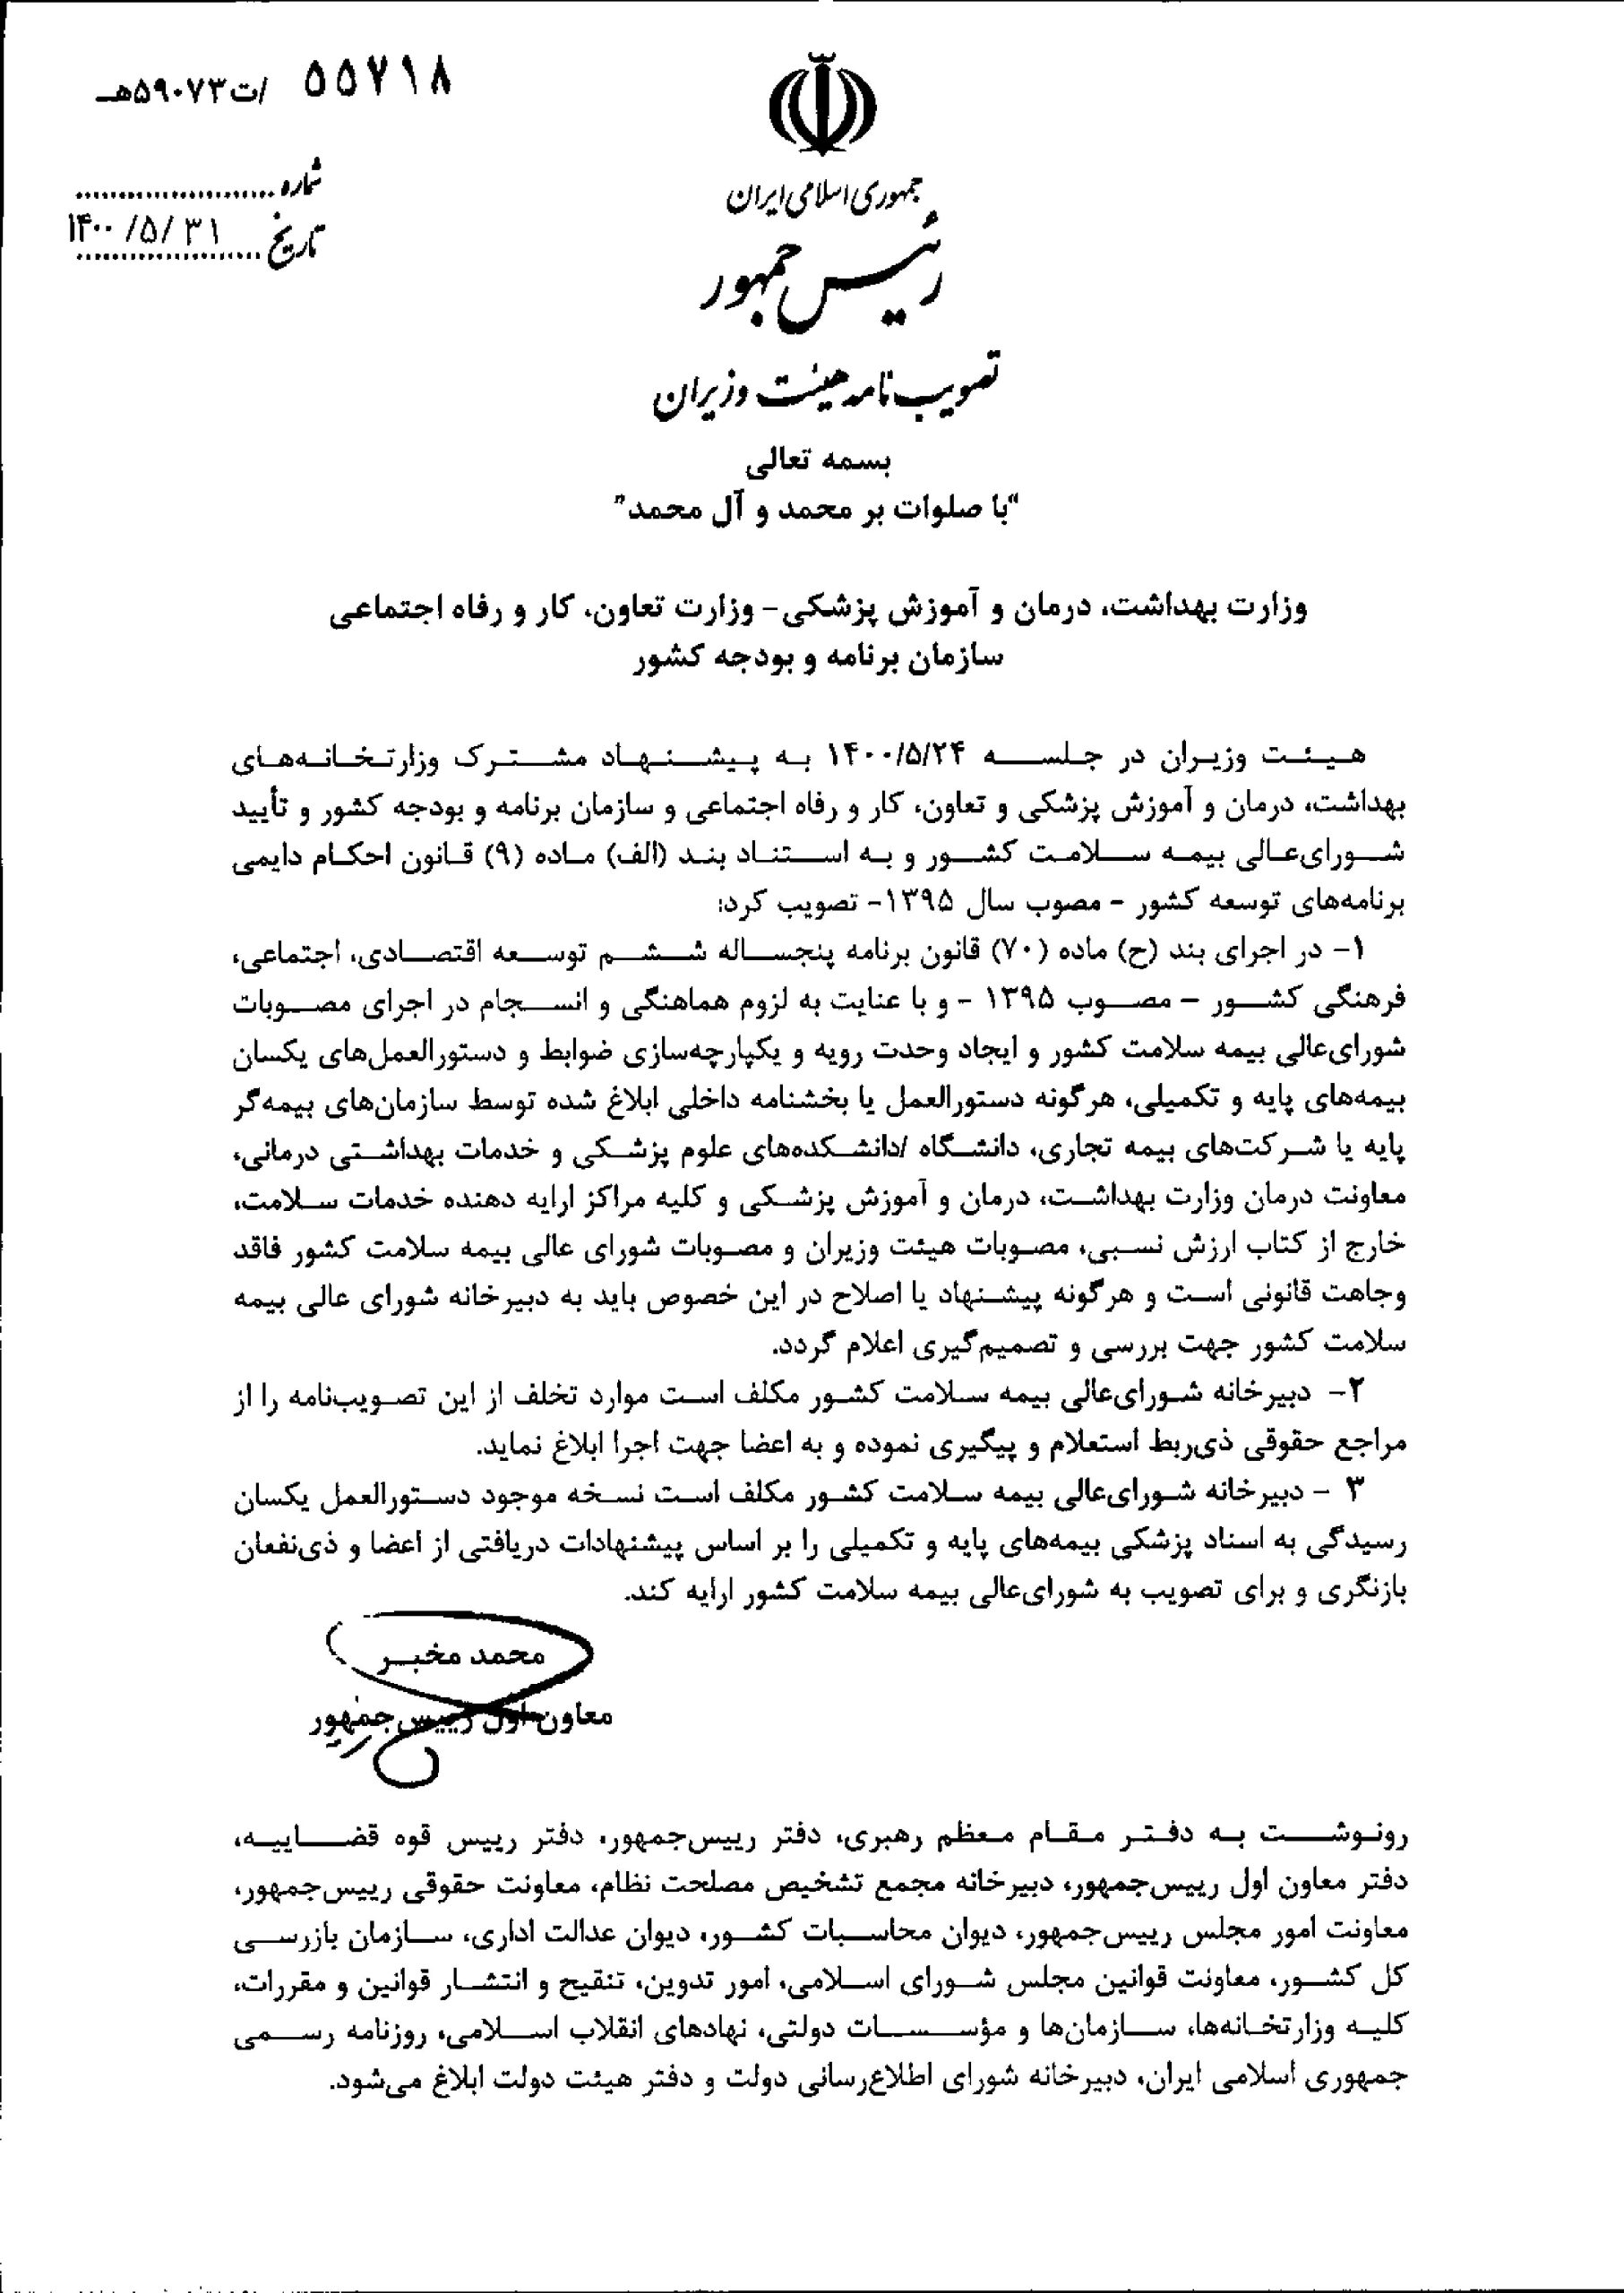 ۵۵۷۱۸ /ت۵۹۰۷۳هـ
شماره ......................
تاریخ ۱۴۰۰/۵/۳۱
جمهوری اسلامی ایران
رئیس جمهور
تصویب نامه هیئت وزیران
بسمه تعالی
"با صلوات بر محمد و آل محمد"
وزارت بهداشت، درمان و آموزش پزشکی- وزارت تعاون، کار و رفاه اجتماعی
سازمان برنامه و بودجه کشور
هیئت وزیران در جلسه ۱۴۰۰/۵/۲۴ به پیشنهاد مشترک وزارتخانه‌های
بهداشت، درمان و آموزش پزشکی و تعاون، کار و رفاه اجتماعی و سازمان برنامه و بودجه کشور و تأیید
شورای‌عالی بیمه سلامت کشور و به استناد بند (الف) ماده (۹) قانون احکام دایمی
برنامه‌های توسعه کشور - مصوب سال ۱۳۹۵- تصویب کرد:
۱- در اجرای بند (ح) ماده (۷۰) قانون برنامه پنجساله ششم توسعه اقتصادی، اجتماعی،
فرهنگی کشور – مصوب ۱۳۹۵ - و با عنایت به لزوم هماهنگی و انسجام در اجرای مصوبات
شورای‌عالی بیمه سلامت کشور و ایجاد وحدت رویه و یکپارچه‌سازی ضوابط و دستورالعمل‌های یکسان
بیمه‌های پایه و تکمیلی، هرگونه دستورالعمل یا بخشنامه داخلی ابلاغ شده توسط سازمان‌های بیمه‌گر
پایه یا شرکت‌های بیمه تجاری، دانشگاه /دانشکده‌های علوم پزشکی و خدمات بهداشتی درمانی،
معاونت درمان وزارت بهداشت، درمان و آموزش پزشکی و کلیه مراکز ارایه دهنده خدمات سلامت،
خارج از کتاب ارزش نسبی، مصوبات هیئت وزیران و مصوبات شورای عالی بیمه سلامت کشور فاقد
وجاهت قانونی است و هرگونه پیشنهاد یا اصلاح در این خصوص باید به دبیرخانه شورای عالی بیمه
سلامت کشور جهت بررسی و تصمیم‌گیری اعلام گردد.
۲- دبیرخانه شورای‌عالی بیمه سلامت کشور مکلف است موارد تخلف از این تصویب‌نامه را از
مراجع حقوقی ذی‌ربط استعلام و پیگیری نموده و به اعضا جهت اجرا ابلاغ نماید.
۳ - دبیرخانه شورای‌عالی بیمه سلامت کشور مکلف است نسخه موجود دستورالعمل یکسان
رسیدگی به اسناد پزشکی بیمه‌های پایه و تکمیلی را بر اساس پیشنهادات دریافتی از اعضا و ذی‌نفعان
بازنگری و برای تصویب به شورای‌عالی بیمه سلامت کشور ارایه کند.
محمد مخبر
معاون اول رییس‌جمهور
رونوشت به دفتر مقام معظم رهبری، دفتر رییس‌جمهور، دفتر رییس قوه قضاییه،
دفتر معاون اول رییس‌جمهور، دبیرخانه مجمع تشخیص مصلحت نظام، معاونت حقوقی رییس‌جمهور،
معاونت امور مجلس رییس‌جمهور، دیوان محاسبات کشور، دیوان عدالت اداری، سازمان بازرسی
کل کشور، معاونت قوانین مجلس شورای اسلامی، امور تدوین، تنقیح و انتشار قوانین و مقررات،
کلیه وزارتخانه‌ها، سازمان‌ها و مؤسسات دولتی، نهادهای انقلاب اسلامی، روزنامه رسمی
جمهوری اسلامی ایران، دبیرخانه شورای اطلاع‌رسانی دولت و دفتر هیئت دولت ابلاغ می‌شود.